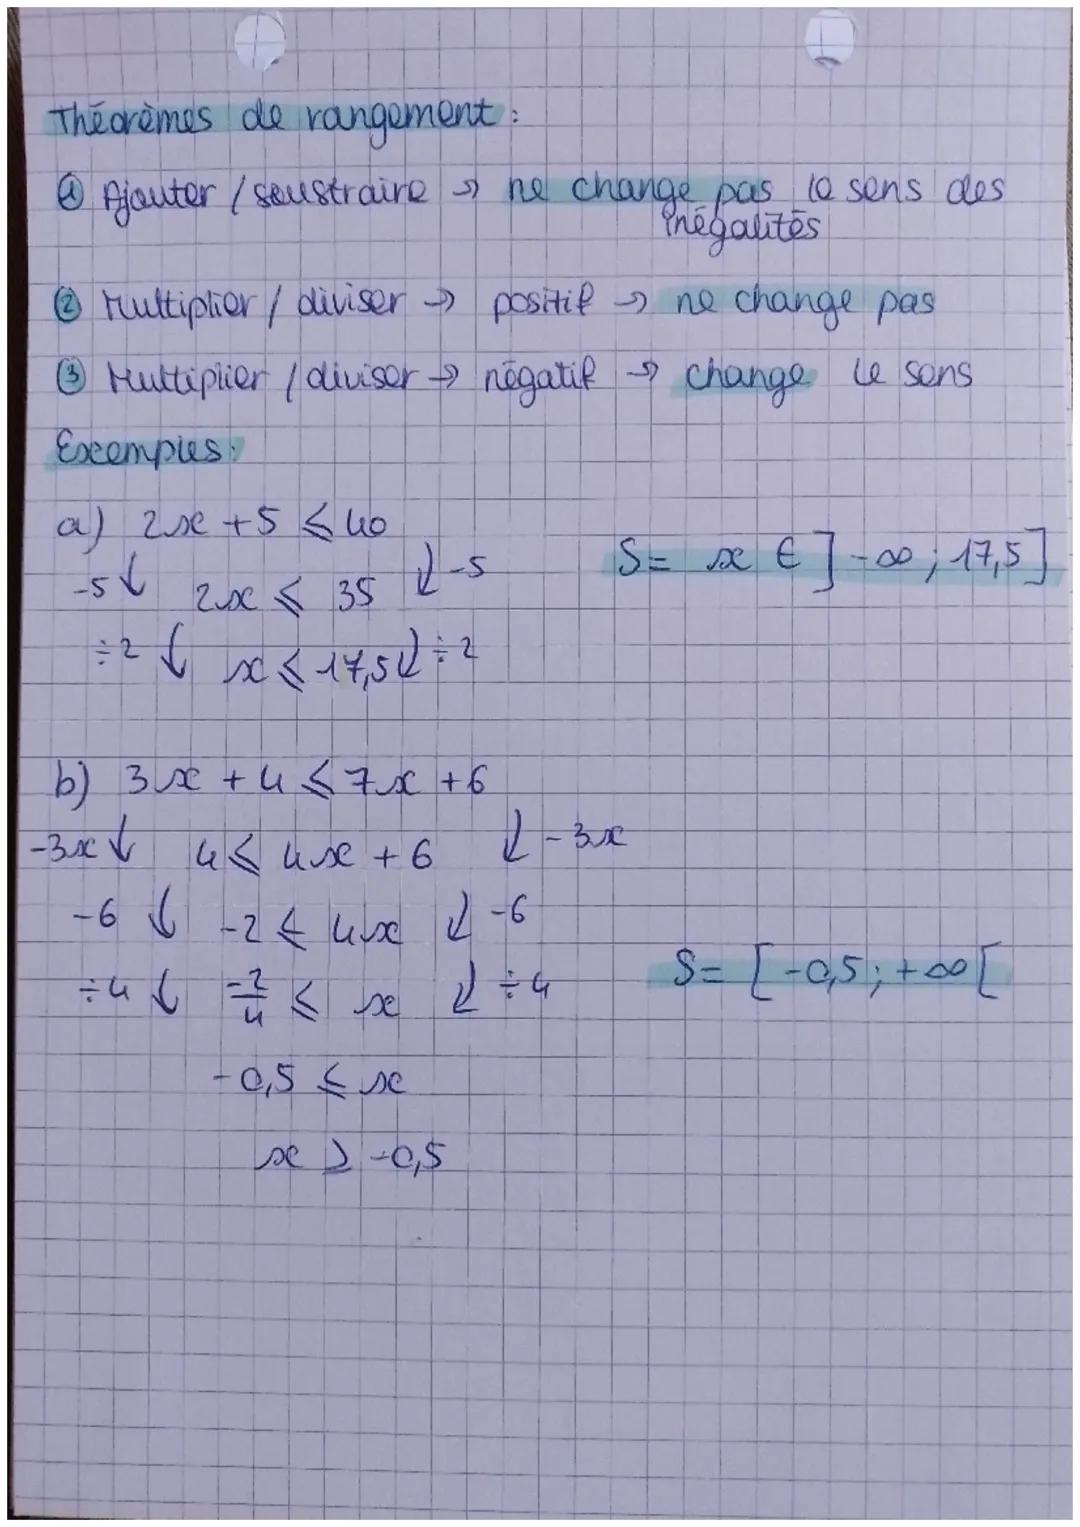 Théorèmes de rangement :
① Ajouter / soustraire → ne change pas le sens des
inégalités
② Multiplier / diviser → positif → ne change pas
③ Multiplier / diviser → négatif → change le sens
Exemples :
a) 2x + 5 ⩽ 40
-5 ↓ 2x ⩽ 35 ↓ -5
S = x ∈ ]-∞ ; 17,5]
÷2 ↓ x ⩽ 17,5 ↓ ÷2
b) 3x + 4 ⩽ 7x + 6
-3x ↓ 4 ⩽ 4x + 6 ↓ -3x
-6 ↓ -2 ⩽ 4x ↓ -6
÷4 ↓ -2/4 ⩽ x ↓ ÷4
S = [-0,5 ; +∞[
-0,5 ⩽ x
x ⩾ -0,5